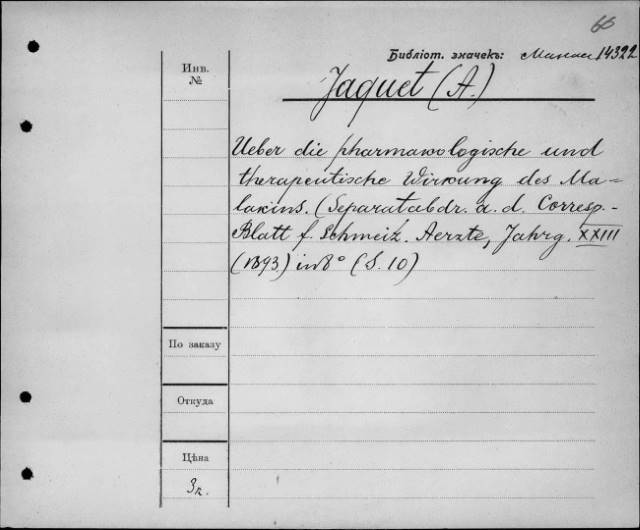 66
Библіот. значекъ: 14322
Инв.
№
Jaquet (A.)
Ueber die pharmakologische und
therapeutische Wirkung des Ma=
lakins. (Separatabdr. a. d. Corresp.-
Blatt f. Schweiz. Aerzte, Jahrg. XXIII
(1893.) in 8° (S. 10)
По заказу
Откуда
Цѣна
3к.